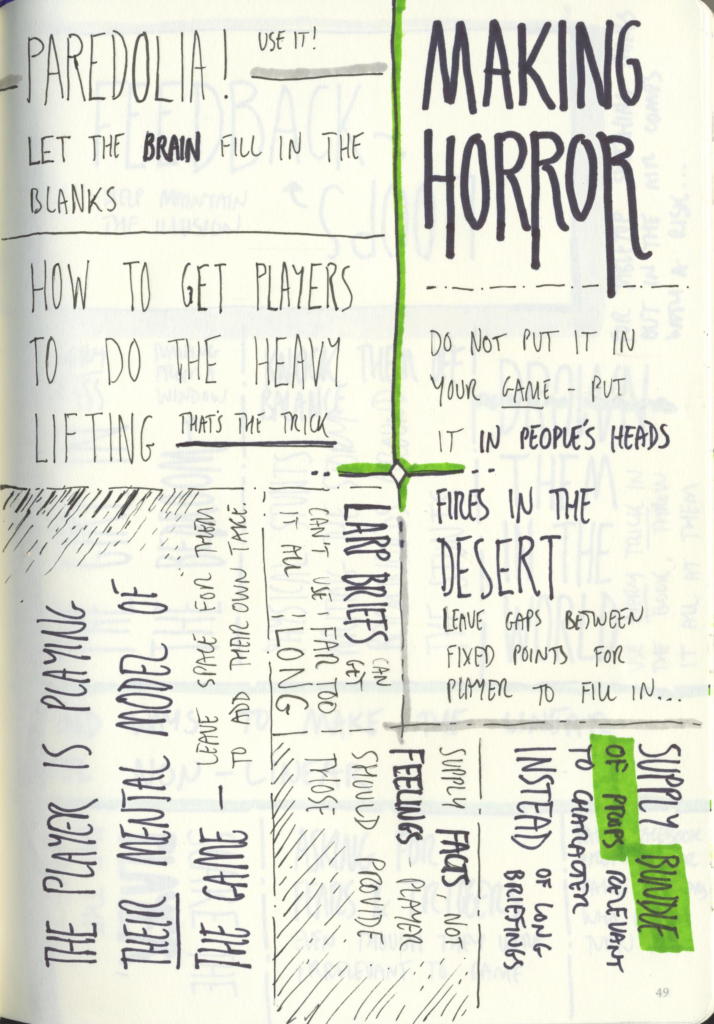 PAREDOLIA!
USE IT!
LET THE BRAIN FILL IN THE
BLANKS
HOW TO GET PLAYERS
TO DO THE HEAVY
LIFTING THAT'S THE TRICK
MAKING
HORROR
DO NOT PUT IT IN
YOUR GAME - PUT
IT IN PEOPLE'S HEADS
FIRES IN THE
DESERT
LEAVE GAPS BETWEEN
FIXED POINTS FOR
PLAYER TO FILL IN...
THE PLAYER IS PLAYING
THEIR MENTAL MODEL OF
THE GAME -
LEAVE SPACE FOR THEM
TO ADD THEIR OWN TAKE.
LARP BRIEFS CAN
GET
FAR TOO
LONG
CAN'T USE
IT ALL
SUPPLY FACTS NOT
FEELINGS PLAYER
SHOULD PROVIDE
THOSE
SUPPLY BUNDLE
OF PROPS RELEVANT
TO CHARACTER
INSTEAD OF LONG
BRIEFINGS
49